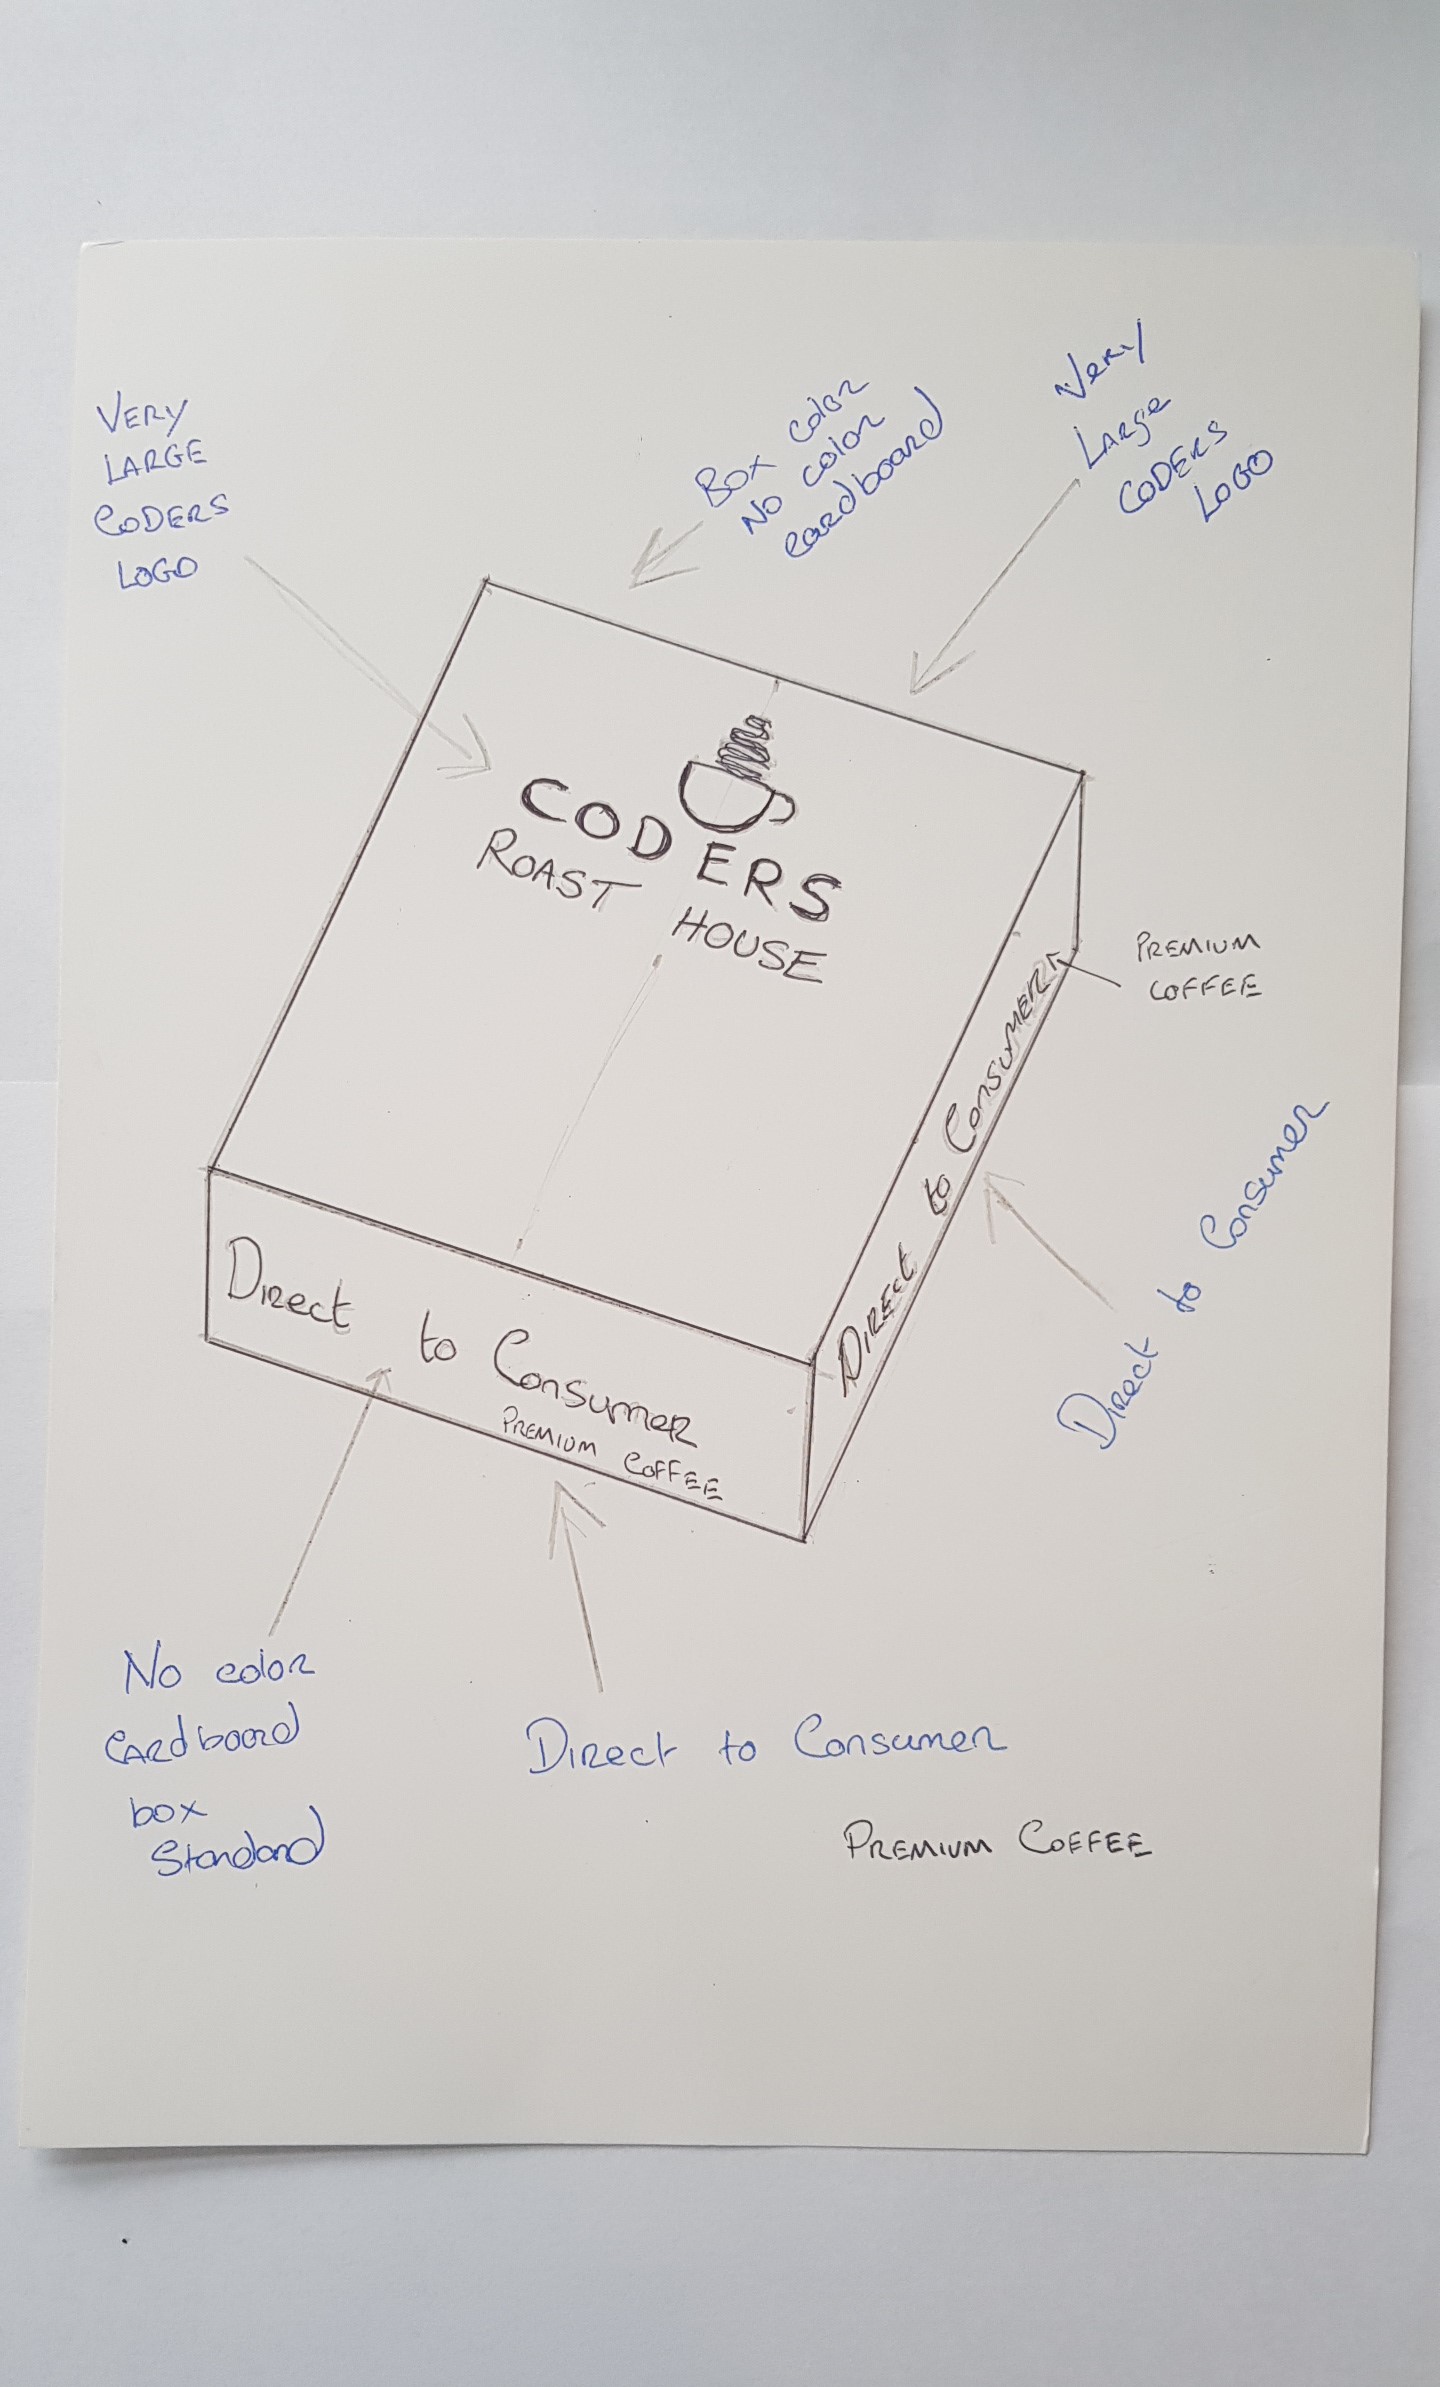 VERY
LARGE
CODERS
LOGO
Box color
No color
cardboard
Very
Large
CODERS
LOGO
CODERS
ROAST HOUSE
PREMIUM
COFFEE
Direct to Consumer
Direct to Consumer
Direct to Consumer
PREMIUM COFFEE
No color
cardboard
box
Standard
Direct to Consumer
PREMIUM COFFEE